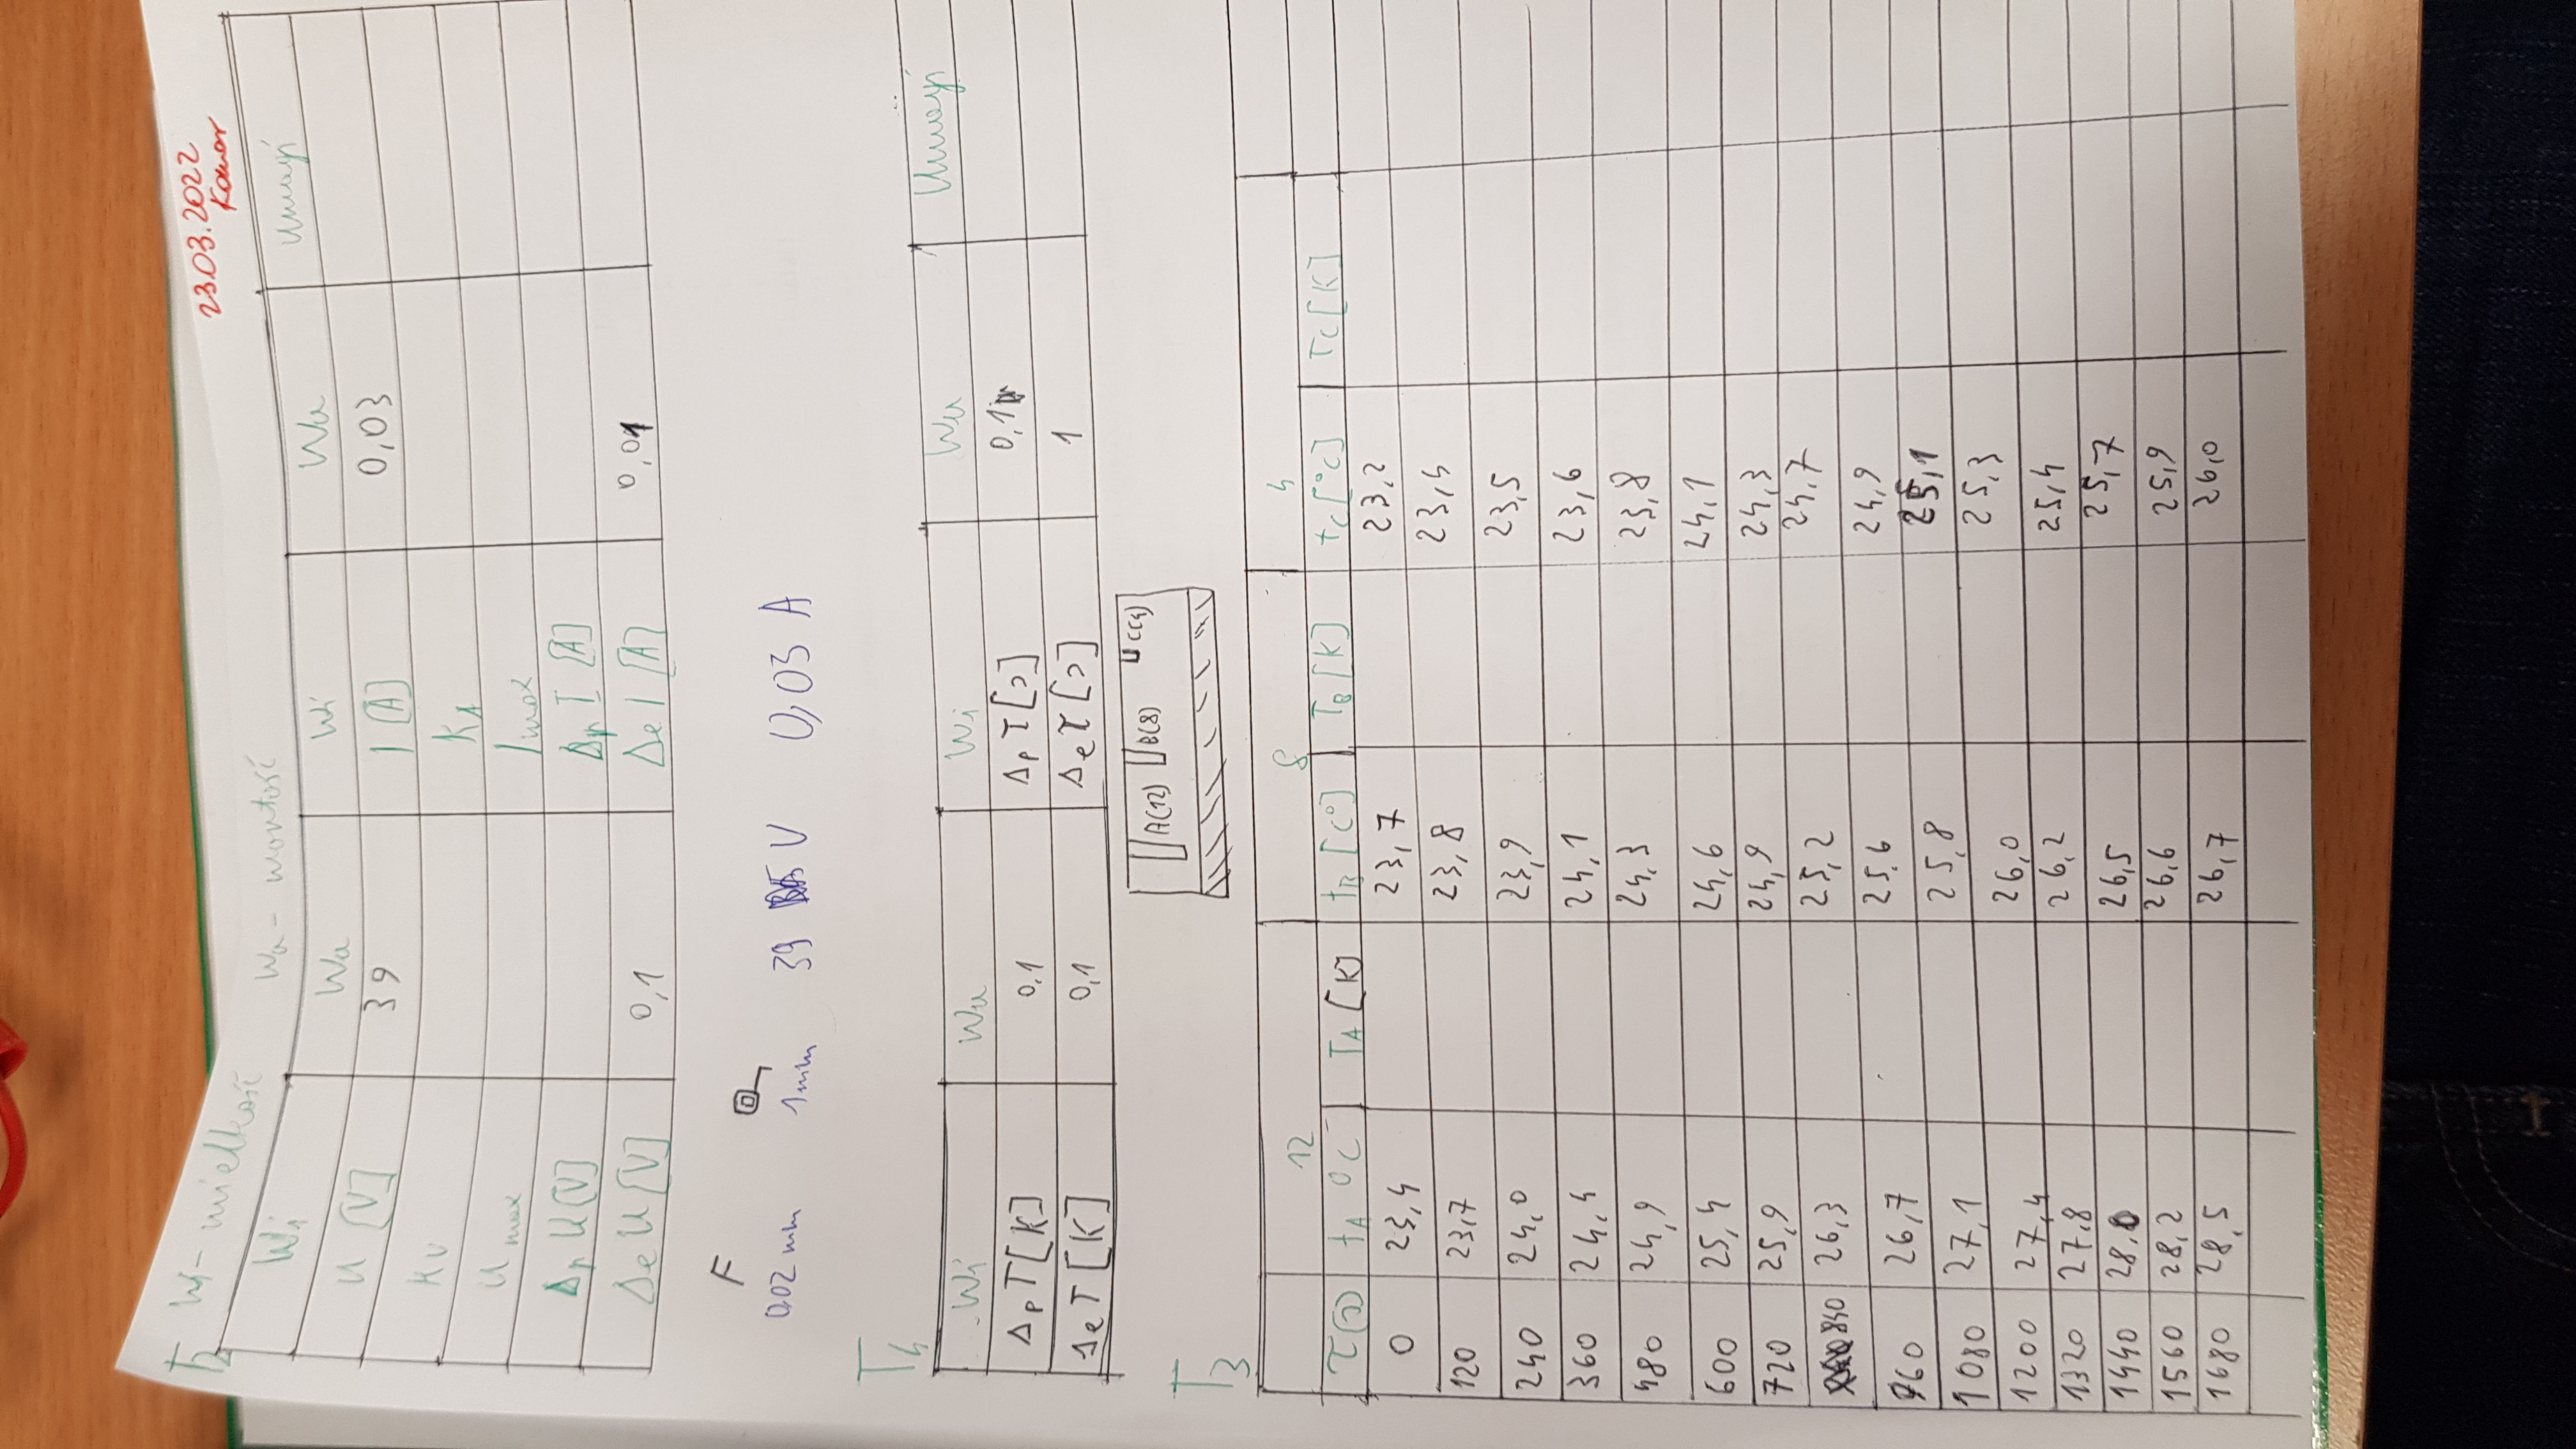 23.03.2022
Komar
T2 Wi - wielkość Wa - wartość
Wi Wa Wi Wa Uwagi
U [V] 39 I [A] 0,03
KV KA
U max I max
Δp U [V] Δp I [A]
Δe U [V] 0,1 Δe I [A] 0,01
F
0,02 mm 1mm 39 V 0,03 A
T4
Wi Wa Wi Wa Uwagi
Δp T [K] 0,1 Δp τ [s] 0,1
Δe T [K] 0,1 Δe τ [s] 1
A(12) B(8) C(4)
T3
12 8 4
τ(s) tA °C TA [K] tB [C°] TB [K] tC [°C] TC [K]
0 23,4 23,7 23,2
120 23,7 23,8 23,4
240 24,0 23,9 23,5
360 24,4 24,1 23,6
480 24,9 24,3 23,8
600 25,4 24,6 24,1
720 25,9 24,9 24,3
840 26,3 25,2 24,7
960 26,7 25,6 24,9
1080 27,1 25,8 25,1
1200 27,4 26,0 25,3
1320 27,8 26,2 25,4
1440 28,0 26,5 25,7
1560 28,2 26,6 25,9
1680 28,5 26,7 26,0